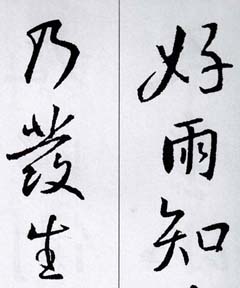 好雨知
乃發生